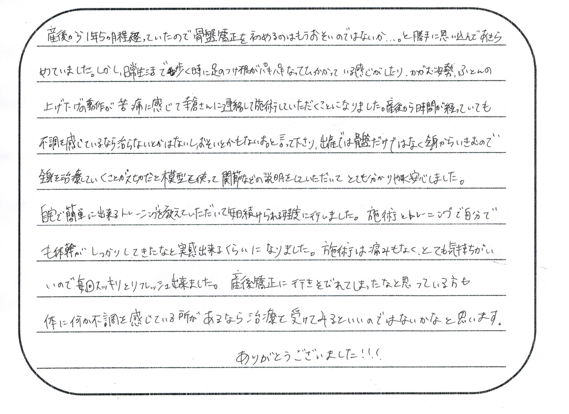 産後から1年5ヵ月程経っていたので骨盤矯正を初めるのはもうおそいのではないか…。と勝手に思い込んであきら
めていました。しかし、日常生活で歩く時に足のつけ根がパキパキなってひっかかっている感じがしたり、かがむ姿勢、ふとんの
上げ下げの動作が苦痛に感じて手倉さんに連絡して施術していただくことになりました。産後から時間が経っていても
不調を感じているなら治らないとかはないしおそいとかもないよと言って下さり、出産では骨盤だけではなく全身からいきむので
全身を治療していくことが大切だと模型を使って関節などの説明をしていただいてとても分かりやすく安心しました。
自宅で簡単に出来るトレーニングを教えていただいて毎日続けられる程度に行いました。施術とトレーニングで自分で
も体幹がしっかりしてきたなと実感出来るくらいになりました。施術は痛みもなく、とても気持ちがい
いので毎回スッキリとリフレッシュ出来ました。産後矯正に行きそびれてしまったなと思っている方も
体に何か不調を感じている所があるなら治療を受けてみるといいのではないかなと思います。
ありがとうございました!!!